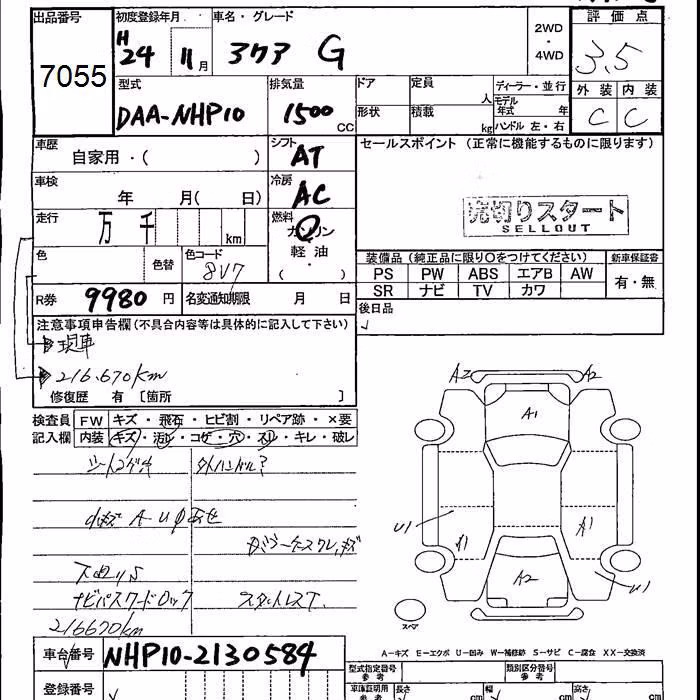 出品番号 初度登録年月 車名・グレード 2WD・4WD 評価点
7055 H24年 11月 アクア G 3.5
型式 排気量 ドア 定員 人 ディーラー・並行 外装 内装
DAA-NHP10 1500cc 形状 積載 kg モデル年式 年 ハンドル 左・右 C C
車歴 自家用・( ) シフト AT セールスポイント (正常に機能するものに限ります)
車検 年 月( 日) 冷房 AC
走行 万 千 km 燃料 ガソリン 軽油 ・( )
売切りスタート
SELLOUT
色 色替 色コード 8V7
装備品 (純正品に限り○をつけてください) 新車保証書
PS PW ABS エアB AW 有・無
SR ナビ TV カワ
R券 9980円 名変通知期限 月 日 後日品
注意事項申告欄(不具合内容等は具体的に記入して下さい)
現車
216,670km
修復歴 有 [箇所 ]
検査員 FW キズ・飛石・ヒビ割・リペア跡・×要
記入欄 内装 キズ・汚レ・コゲ・穴・スリ・キレ・破レ
小キズ A-U
ナビパスワードロック スタットレスT
216670km
A2 A2
A1
U1 A1 A1
A2 U1
スペア
A-キズ E-エクボ U-凹み W-補修跡 S-サビ C-腐食 XX-交換済
車台番号 NHP10-2130584 型式指定番号 参考 類別区分番号 参考
登録番号 車庫証明用 参考 長さ cm 幅 cm 高さ cm